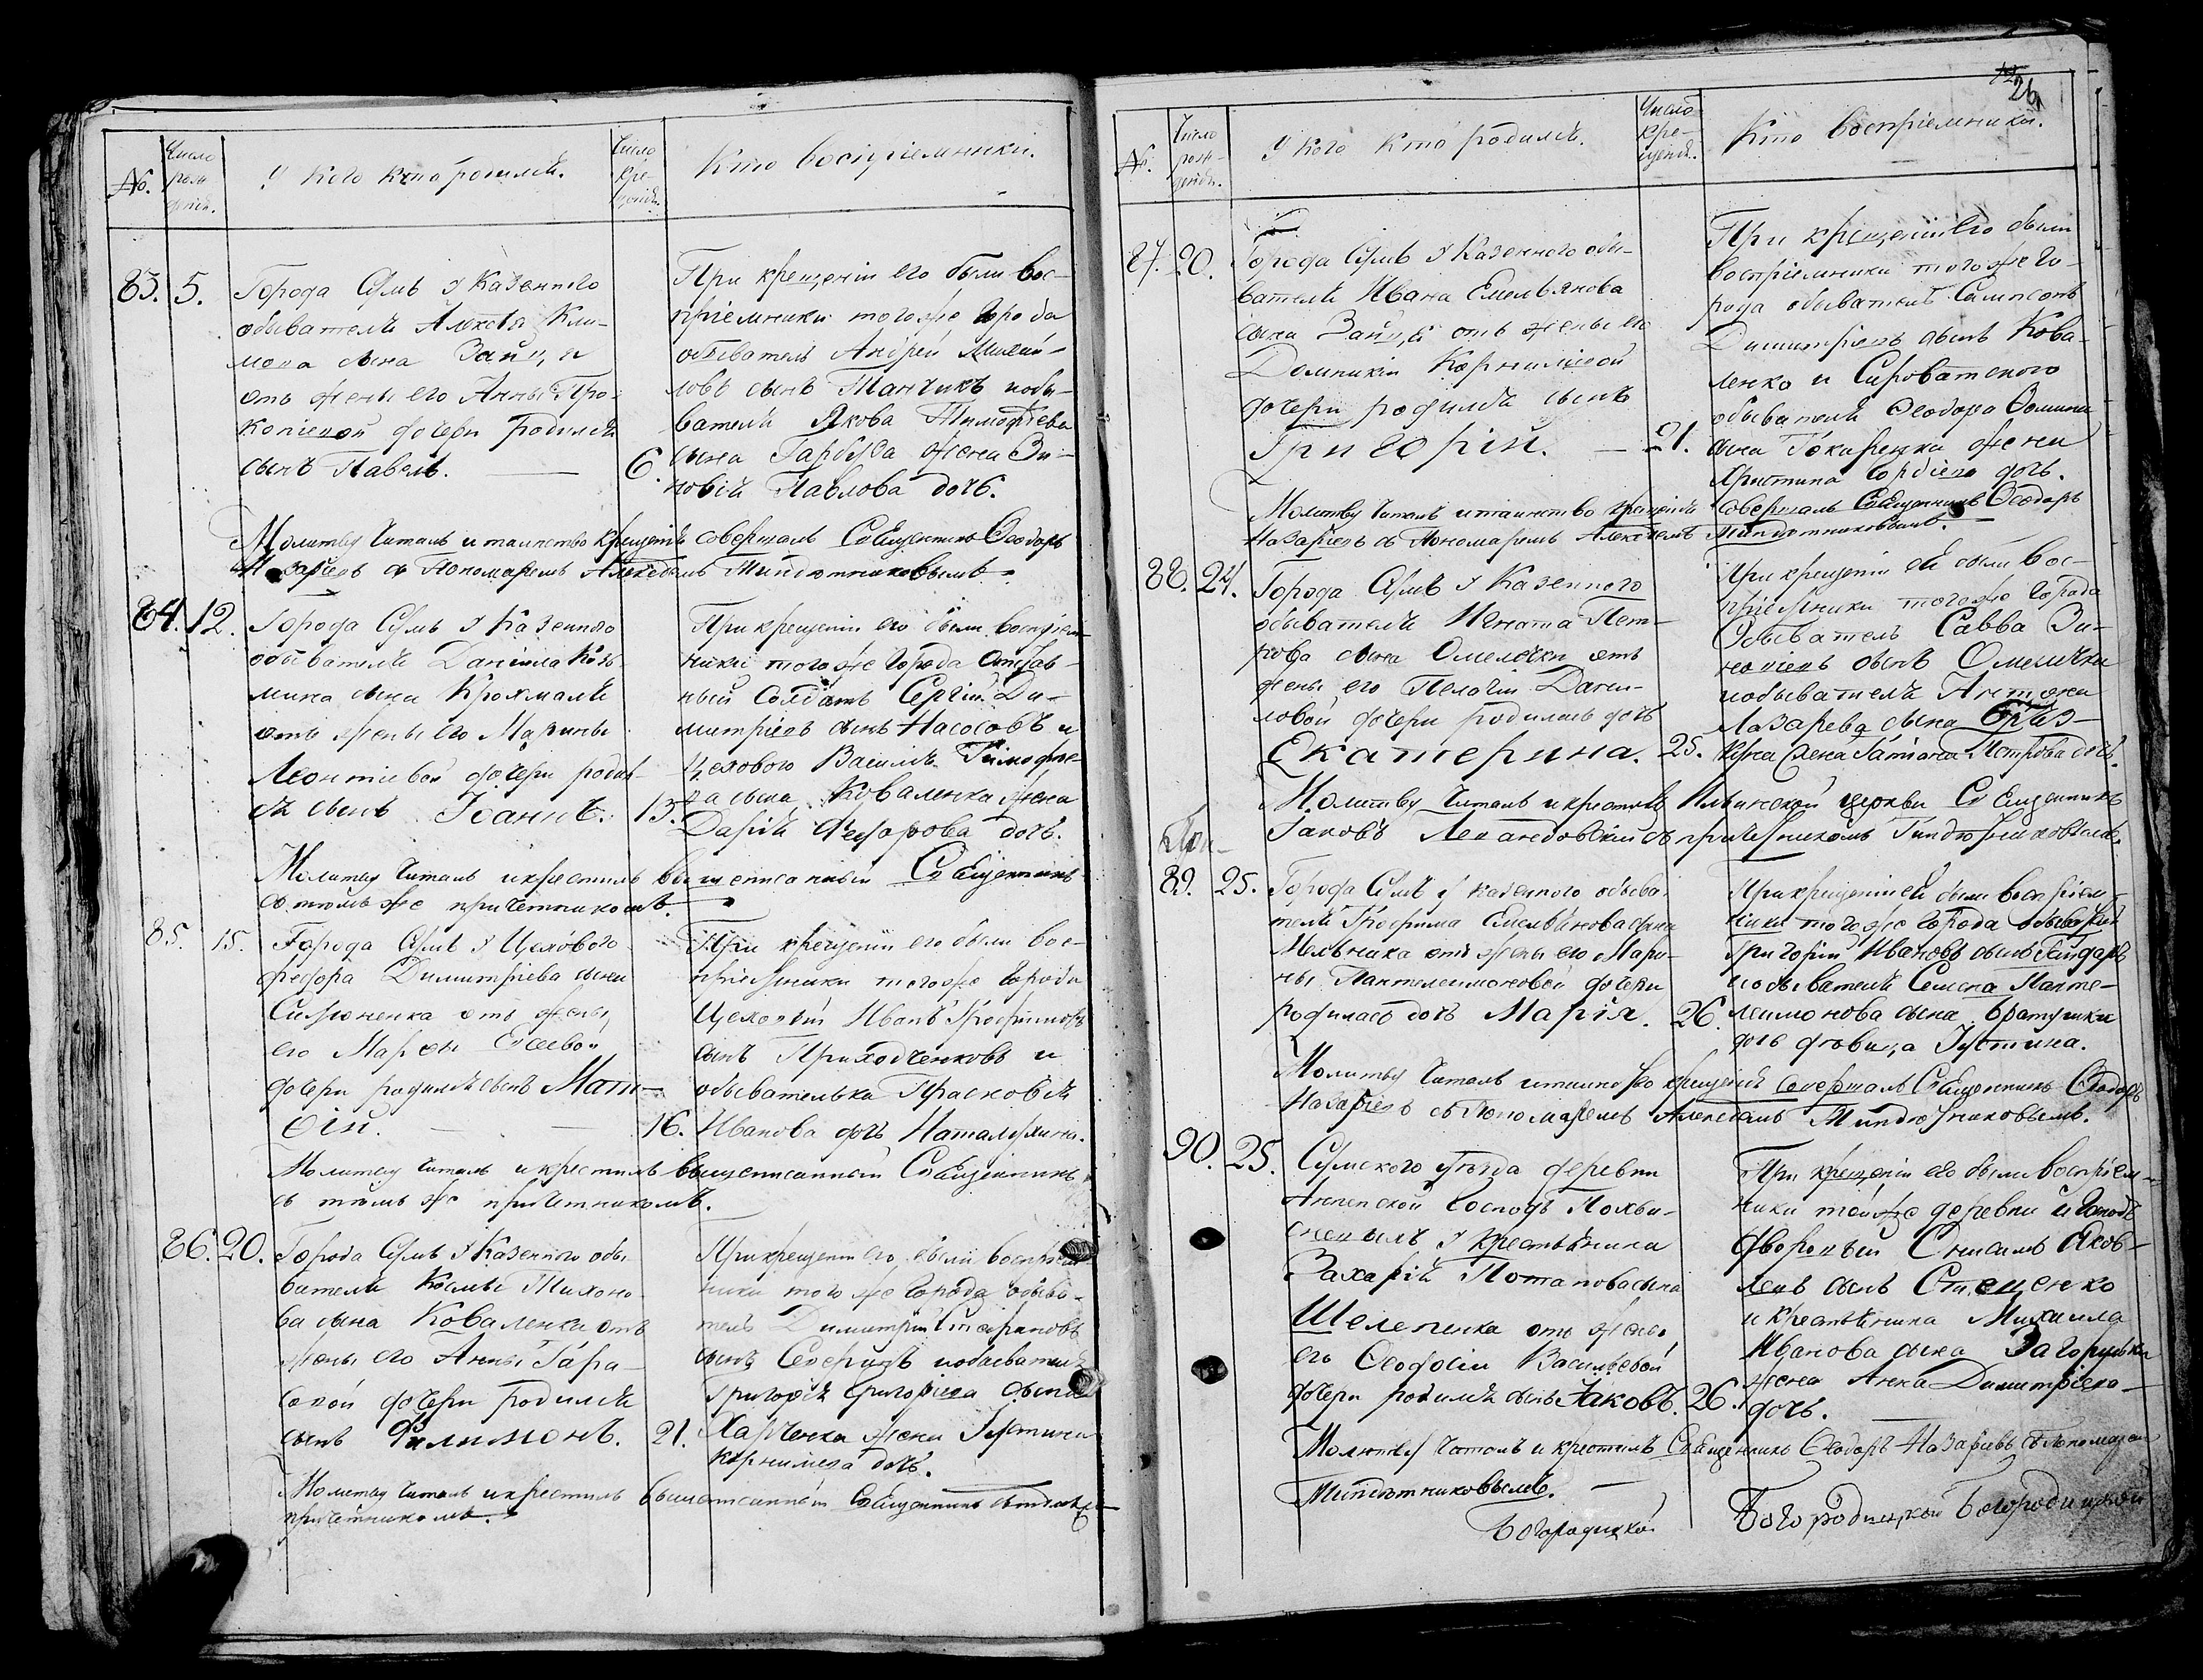 №.
Число рождѣнія.
У кого кто родился.
Число крещенія.
Кто воспріемники.
83. 5.
Города Сумъ у Казеннаго
обывателя Алексѣя Кли-
мова сына Зайца
отъ жены его Анны Про-
копіевой дочери родился
сынъ Павелъ. — 6.
При крещеніи его были вос-
пріемники того же города
обыватель Андрей Михай-
ловъ сынъ Танчикъ и обы-
вателя Якова Тимофѣева
сына Гарбуза жена Зи-
новія Павлова дочь.
Молитву читалъ и таинство крещенія совершалъ Священникъ Ѳеодоръ
Назаріевъ съ Пономаремъ Алексѣемъ
84. 12.
Города Сумъ у Казеннаго
обывателя Даніила Козь-
мина сына Крохмаля
отъ жены его Марины
Леонтіевой дочери родил-
ся сынъ Іоаннъ. 13.
При крещеніи его были воспріем-
ники того же города Отстав-
ный Солдатъ Сергій Ди-
митріевъ сынъ Насосовъ и
Цеховаго Василія Тимофѣе-
ва сына Коваленка жена
Дарія Федорова дочь.
Молитву читалъ и крестилъ вышеписанный Священникъ
съ тѣмъ же причетникомъ.
85. 15.
Города Сумъ у Цеховаго
Федора Димитріева сына
отъ жены
его Марѳы
дочери родился сынъ Мат-
ѳій. — — 16.
При крещеніи его были вос-
пріемники того же города
Цеховый Иванъ Трофимовъ
сынъ Приходченковъ и
обывателька Прасковія
Иванова дочь
Молитву читалъ и крестилъ вышеписанный Священникъ
съ тѣмъ же причетникомъ.
86. 20.
Города Сумъ у Казеннаго обы-
вателя Космы Тихоно-
ва сына Коваленка отъ
жены его Анны Гара-
совой дочери родился
сынъ Филимонъ. 21.
При крещеніи его были воспріем-
ники того же города обыва-
тель Димитрій
сынъ и обывателя
Григорія Григоріева сына
Харченка жена Іустина
Корнилева дочь.
Молитву читалъ и крестилъ вышеписанный Священникъ съ тѣмъ же
причетникомъ.
26
№.
Число рождѣнія.
У кого кто родился.
Число крещенія.
Кто воспріемники.
87. 20.
Города Сумъ у Казеннаго обы-
вателя Ивана Емельянова
сына Зайца отъ жены его
Домникіи Корниліевой
дочери родился сынъ
Григорій. — 21.
При крещеніи его были
воспріемники того же го-
рода обыватель Сампсонъ
Димитріевъ сынъ Кова-
ленко и Сыроватского
обывателя Ѳеодора Ѳомина
сына Токаренка жена
Христина Гордіева дочь.
Молитву читалъ и таинство крещенія совершалъ Священникъ Ѳеодоръ
Назаріевъ съ Пономаремъ Алексѣемъ
88. 24.
Города Сумъ у Казеннаго
обывателя Игната Пет-
рова сына Омелечки отъ
жены его Пелагіи Дани-
ловой дочери родилась дочь
Екатерина. 25.
При крещеніи ея были вос-
пріемники того же города
Обыватель Савва Зи-
новіевъ сынъ Омелечка
и обывателя Антона
Лазарева сына
жена Татіана Петрова дочь.
Молитву читалъ и крестилъ Ильинской церкви Священникъ
Іаковъ съ причетникомъ
89. 25.
Города Сумъ у казеннаго обыва-
теля Трофима Емельянова сына
Мельника отъ жены его Мари-
ны Пантелеимоновой дочери
родилась дочь Марія. 26.
При крещеніи ея были воспріем-
ники того же города обыватель
Григорій Ивановъ сынъ Гайдаръ
и обывателя Семена Панте-
леимонова сына Братушки
дочь дѣвица Іустина.
Молитву читалъ и таинство крещенія совершалъ Священникъ Ѳеодоръ
Назаріевъ съ Пономаремъ Алексѣемъ
90. 25.
Сумского уѣзда деревни
Анненской Господъ
у крестьянина
Захарія Потапова сына
Шелепенка отъ жены
его Ѳеодосіи Васильевой
дочери родился сынъ Іаковъ. 26.
При крещеніи его были воспріем-
ники той же деревни и Господъ
дворовый Онисимъ Яков-
левъ сынъ Стеценко
и крестьянина Михаила
Иванова сына Загорулька
жена Анна Димитріева
дочь.
Молитву читалъ и крестилъ Священникъ Ѳеодоръ Назаріевъ съ Пономаремъ
Богородицкой
Богородицкой Богородицкой